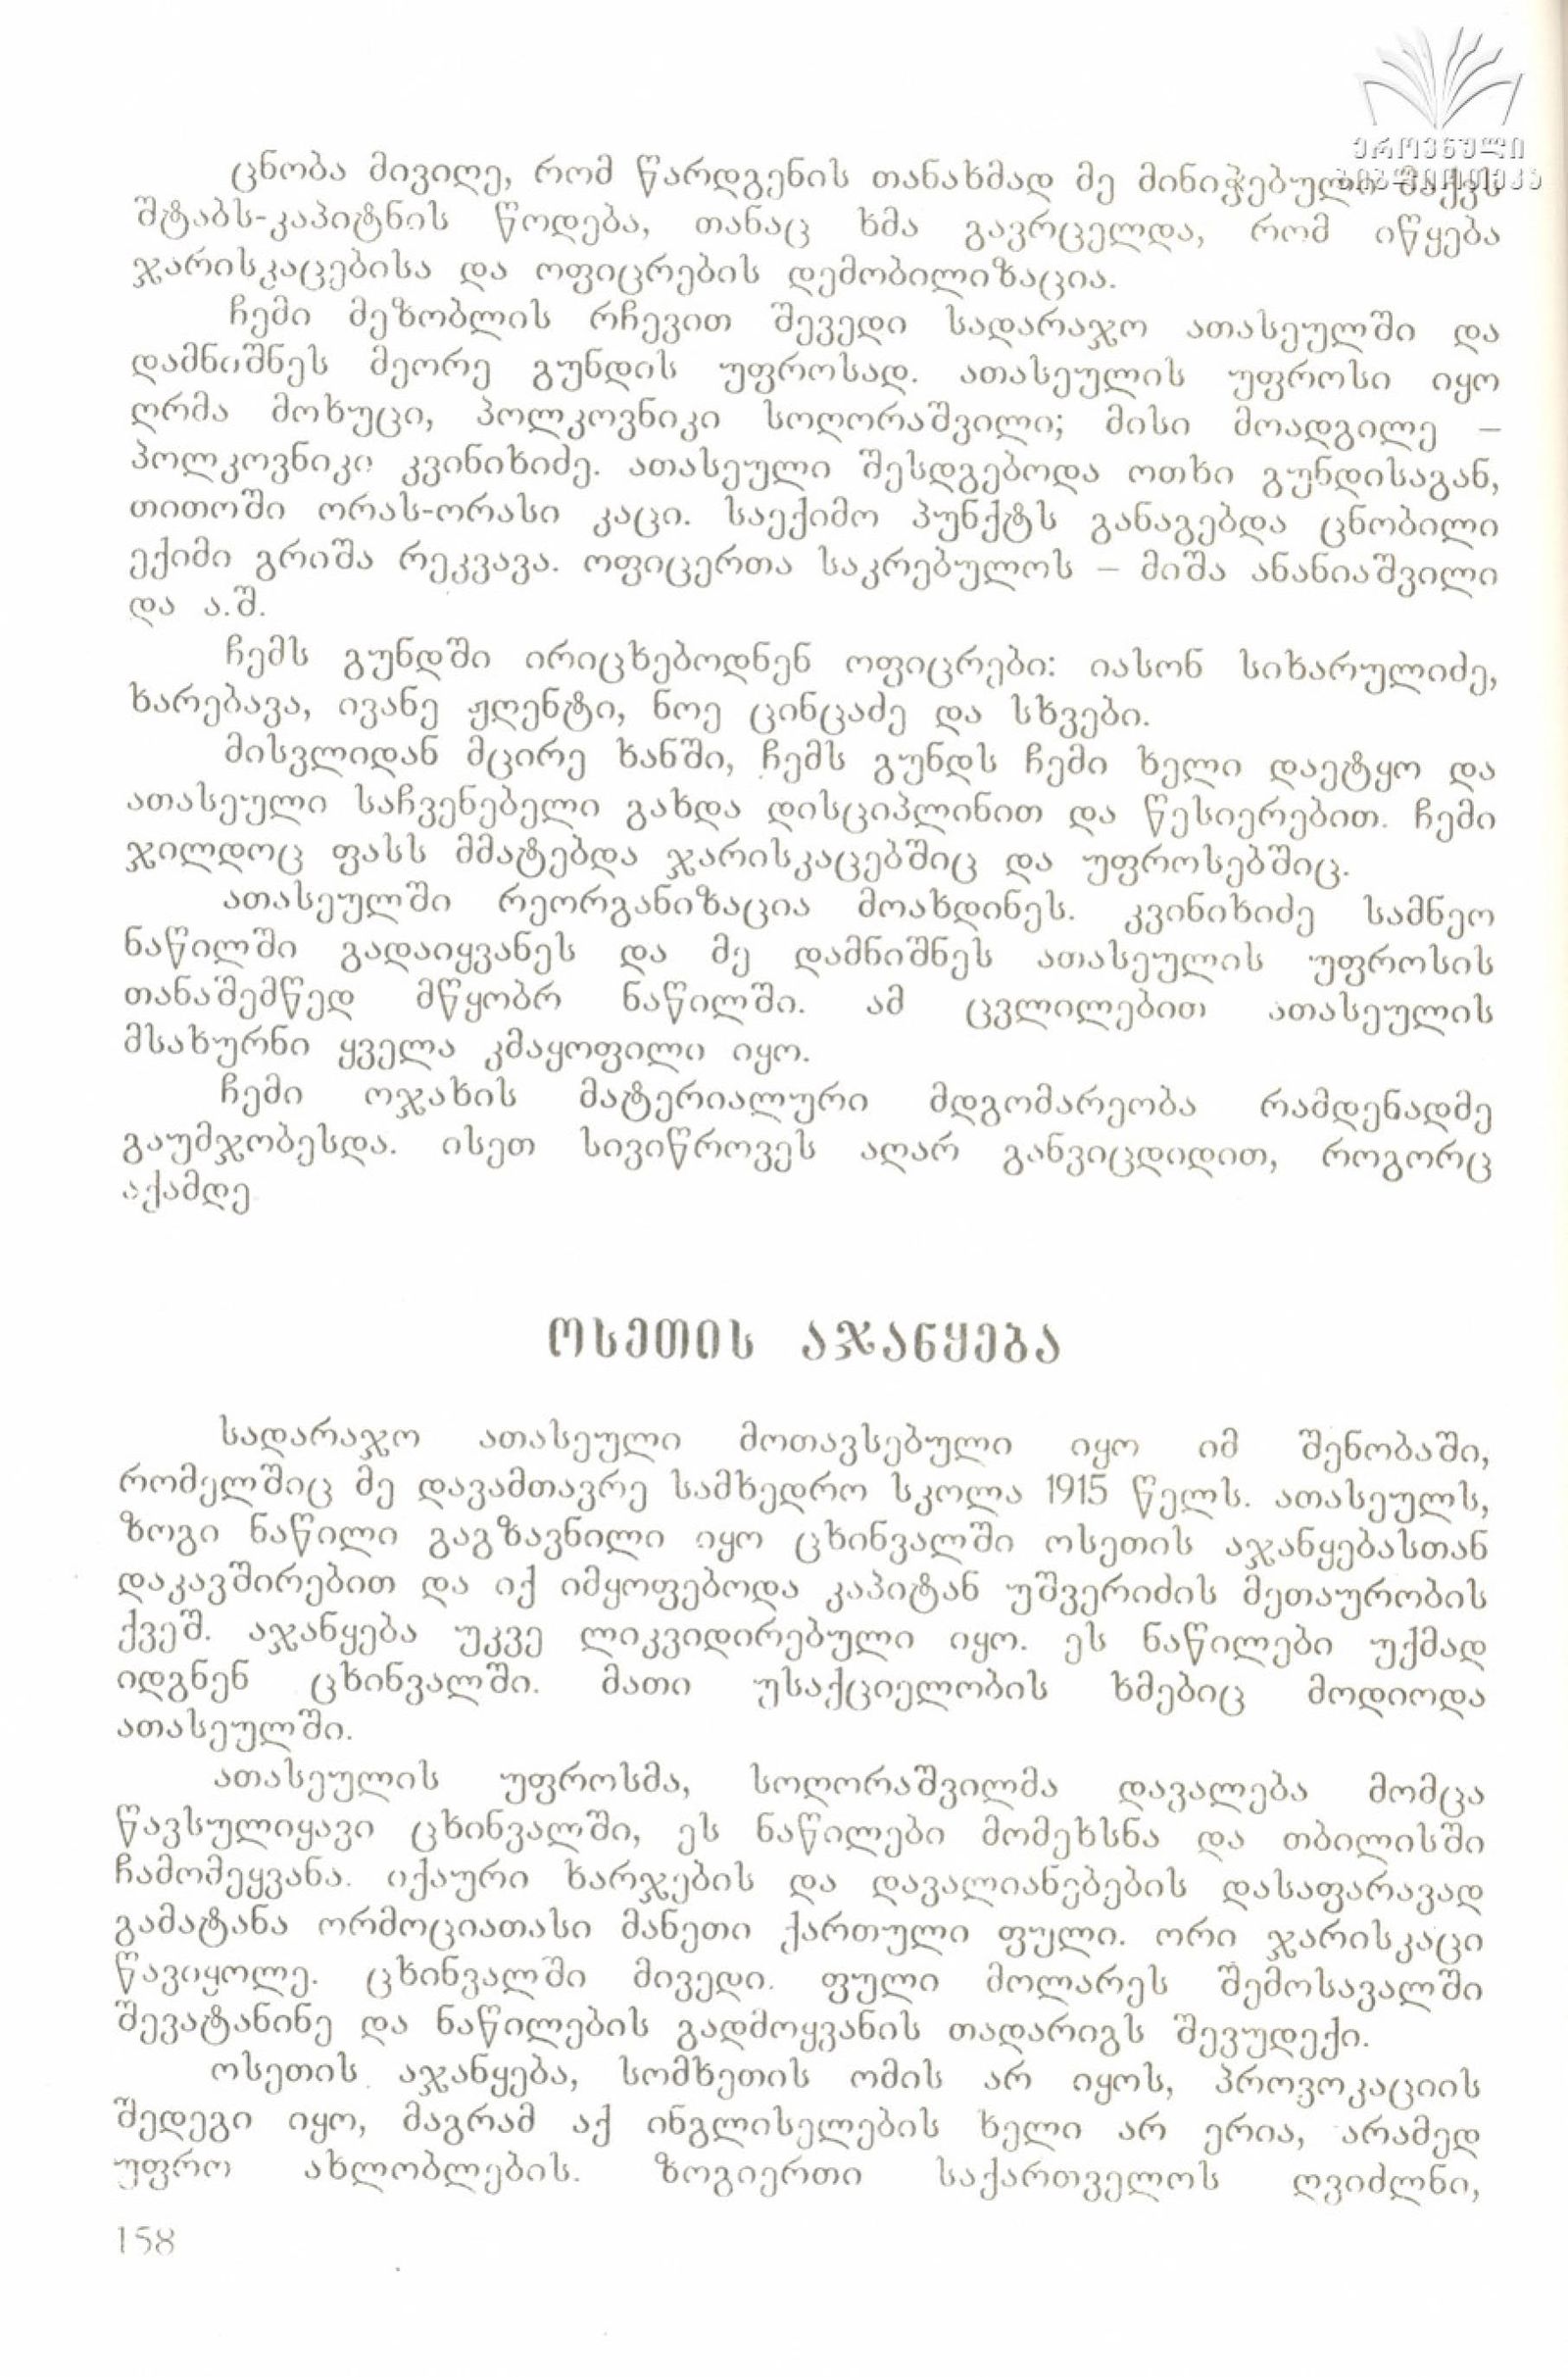 ეროვნული
ბიბლიოთეკა
ცნობა მივიღე, რომ წარდგენის თანახმად მე მინიჭებული მაქვს
შტაბს-კაპიტნის წოდება, თანაც ხმა გავრცელდა, რომ იწყება
ჯარისკაცებისა და ოფიცრების დემობილიზაცია.
ჩემი მეზობლის რჩევით შევედი სადარაჯო ათასეულში და
დამნიშნეს მეორე გუნდის უფროსად. ათასეულის უფროსი იყო
ღრმა მოხუცი, პოლკოვნიკი სოღორაშვილი; მისი მოადგილე –
პოლკოვნიკი კვინიხიძე. ათასეული შესდგებოდა ოთხი გუნდისაგან,
თითოში ორას-ორასი კაცი. საექიმო პუნქტს განაგებდა ცნობილი
ექიმი გრიშა რეკვავა. ოფიცერთა საკრებულოს – მიშა ანანიაშვილი
და ა.შ.
ჩემს გუნდში ირიცხებოდნენ ოფიცრები: იასონ სიხარულიძე,
ხარებავა, ივანე ჟღენტი, ნოე ცინცაძე და სხვები.
მისვლიდან მცირე ხანში, ჩემს გუნდს ჩემი ხელი დაეტყო და
ათასეული საჩვენებელი გახდა დისციპლინით და წესიერებით. ჩემი
ჯილდოც ფასს მმატებდა ჯარისკაცებშიც და უფროსებშიც.
ათასეულში რეორგანიზაცია მოახდინეს. კვინიხიძე სამნეო
ნაწილში გადაიყვანეს და მე დამნიშნეს ათასეულის უფროსის
თანაშემწედ მწყობრ ნაწილში. ამ ცვლილებით ათასეულის
მსახურნი ყველა კმაყოფილი იყო.
ჩემი ოჯახის მატერიალური მდგომარეობა რამდენადმე
გაუმჯობესდა. ისეთ სივიწროვეს აღარ განვიცდიდით, როგორც
აქამდე
ოსეთის აჯანყება
სადარაჯო ათასეული მოთავსებული იყო იმ შენობაში,
რომელშიც მე დავამთავრე სამხედრო სკოლა 1915 წელს. ათასეულს,
ზოგი ნაწილი გაგზავნილი იყო ცხინვალში ოსეთის აჯანყებასთან
დაკავშირებით და იქ იმყოფებოდა კაპიტან უშვერიძის მეთაურობის
ქვეშ. აჯანყება უკვე ლიკვიდირებული იყო. ეს ნაწილები უქმად
იდგნენ ცხინვალში. მათი უსაქციელობის ხმებიც მოდიოდა
ათასეულში.
ათასეულის უფროსმა, სოღორაშვილმა დავალება მომცა
წავსულიყავი ცხინვალში, ეს ნაწილები მომეხსნა და თბილისში
ჩამომეყვანა. იქაური ხარჯების და დავალიანებების დასაფარავად
გამატანა ორმოციათასი მანეთი ქართული ფული. ორი ჯარისკაცი
წავიყოლე. ცხინვალში მივედი. ფული მოლარეს შემოსავალში
შევატანინე და ნაწილების გადმოყვანის თადარიგს შევუდექი.
ოსეთის აჯანყება, სომხეთის ომის არ იყოს, პროვოკაციის
შედეგი იყო, მაგრამ აქ ინგლისელების ხელი არ ერია, არამედ
უფრო ახლობლების. ზოგიერთი საქართველოს ღვიძლნი,
158